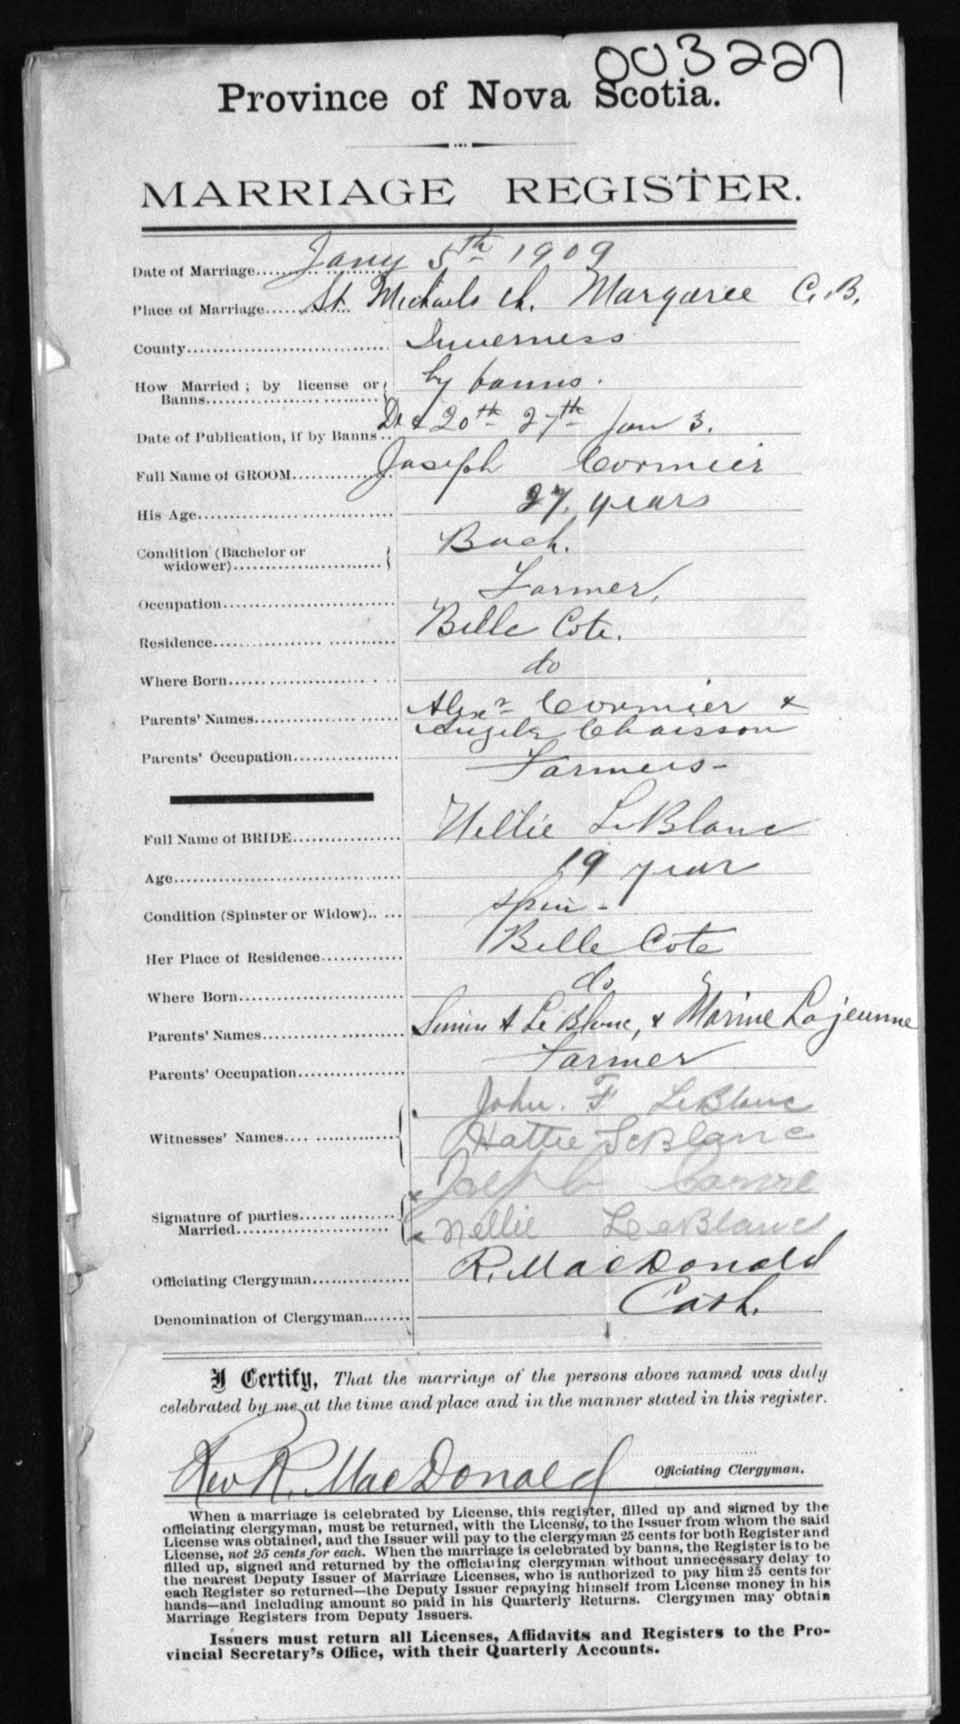 003227
Province of Nova Scotia.
MARRIAGE REGISTER.
Date of Marriage.... Jany 5th 1909
Place of Marriage.... St Michaels Ch. Margaree C.B.
County.... Inverness
How Married ; by license or
Banns.... by banns.
Date of Publication, if by Banns.. 20th 27th Jan 3.
Full Name of GROOM.... Joseph Cormier
His Age.... 27 years
Condition (Bachelor or
widower).... Bach.
Occupation.... Farmer,
Residence.... Belle Cote.
Where Born.... do
Parents' Names.... Alexr Cormier &
Chaisson
Parents' Occupation.... Farmers-
Full Name of BRIDE.... Nellie LeBlanc
Age.... 19 year
Condition (Spinster or Widow).. ... Spin -
Her Place of Residence.... Belle Cote
Where Born.... do
Parents' Names.... LeBlanc, & Marine Lajeunne
Parents' Occupation.... Farmer
John. F LeBlanc
Witnesses' Names.... Hattie LeBlanc
Joseph
Signature of parties....
Married.... Nellie LeBlanc
Officiating Clergyman.... R. MacDonald
Denomination of Clergyman.... Cath.
I Certify, That the marriage of the persons above named was duly
celebrated by me at the time and place and in the manner stated in this register.
Rev R. MacDonald Officiating Clergyman.
When a marriage is celebrated by License, this register, filled up and signed by the
officiating clergyman, must be returned, with the License, to the Issuer from whom the said
License was obtained, and the Issuer will pay to the clergyman 25 cents for both Register and
License, not 25 cents for each. When the marriage is celebrated by banns, the Register is to be
filled up, signed and returned by the officiating clergyman without unnecessary delay to
the nearest Deputy Issuer of Marriage Licenses, who is authorized to pay him 25 cents for
each Register so returned—the Deputy Issuer repaying himself from License money in his
hands—and including amount so paid in his Quarterly Returns. Clergymen may obtain
Marriage Registers from Deputy Issuers.
Issuers must return all Licenses, Affidavits and Registers to the Pro-
vincial Secretary's Office, with their Quarterly Accounts.